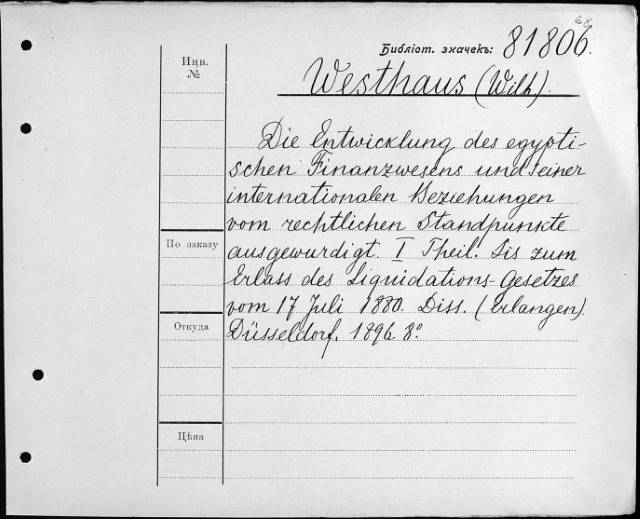 68
Библіот. значекъ: 81806.
Инв.
№
Westhaus (Wilh.).
Die Entwicklung des egypti-
schen Finanzwesens und seiner
internationalen Beziehungen
vom rechtlichen Standpunkte
По заказу
ausgewurdigt. I Theil. Lis zum
Erlass des Liquidations-Gesetzes
vom 17 Juli 1880. Diss. (Erlangen).
Откуда
Düsseldorf. 1896. 8°.
Цѣна